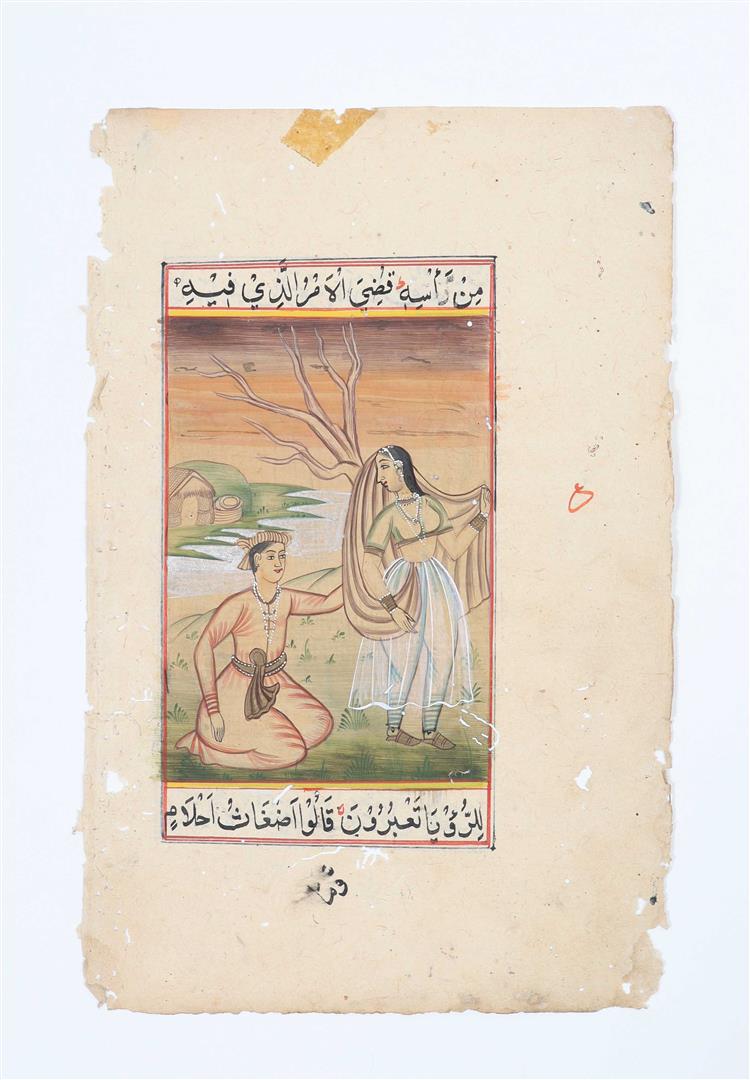 مِنْ رَّأْسِهٖ قُضِيَ الْاَمْرُ الَّذِيْ فِيْهِ
لِلرُّءْيَا تَعْبُرُوْنَ قَالُوْا اَضْغَاثُ اَحْلَامٍ